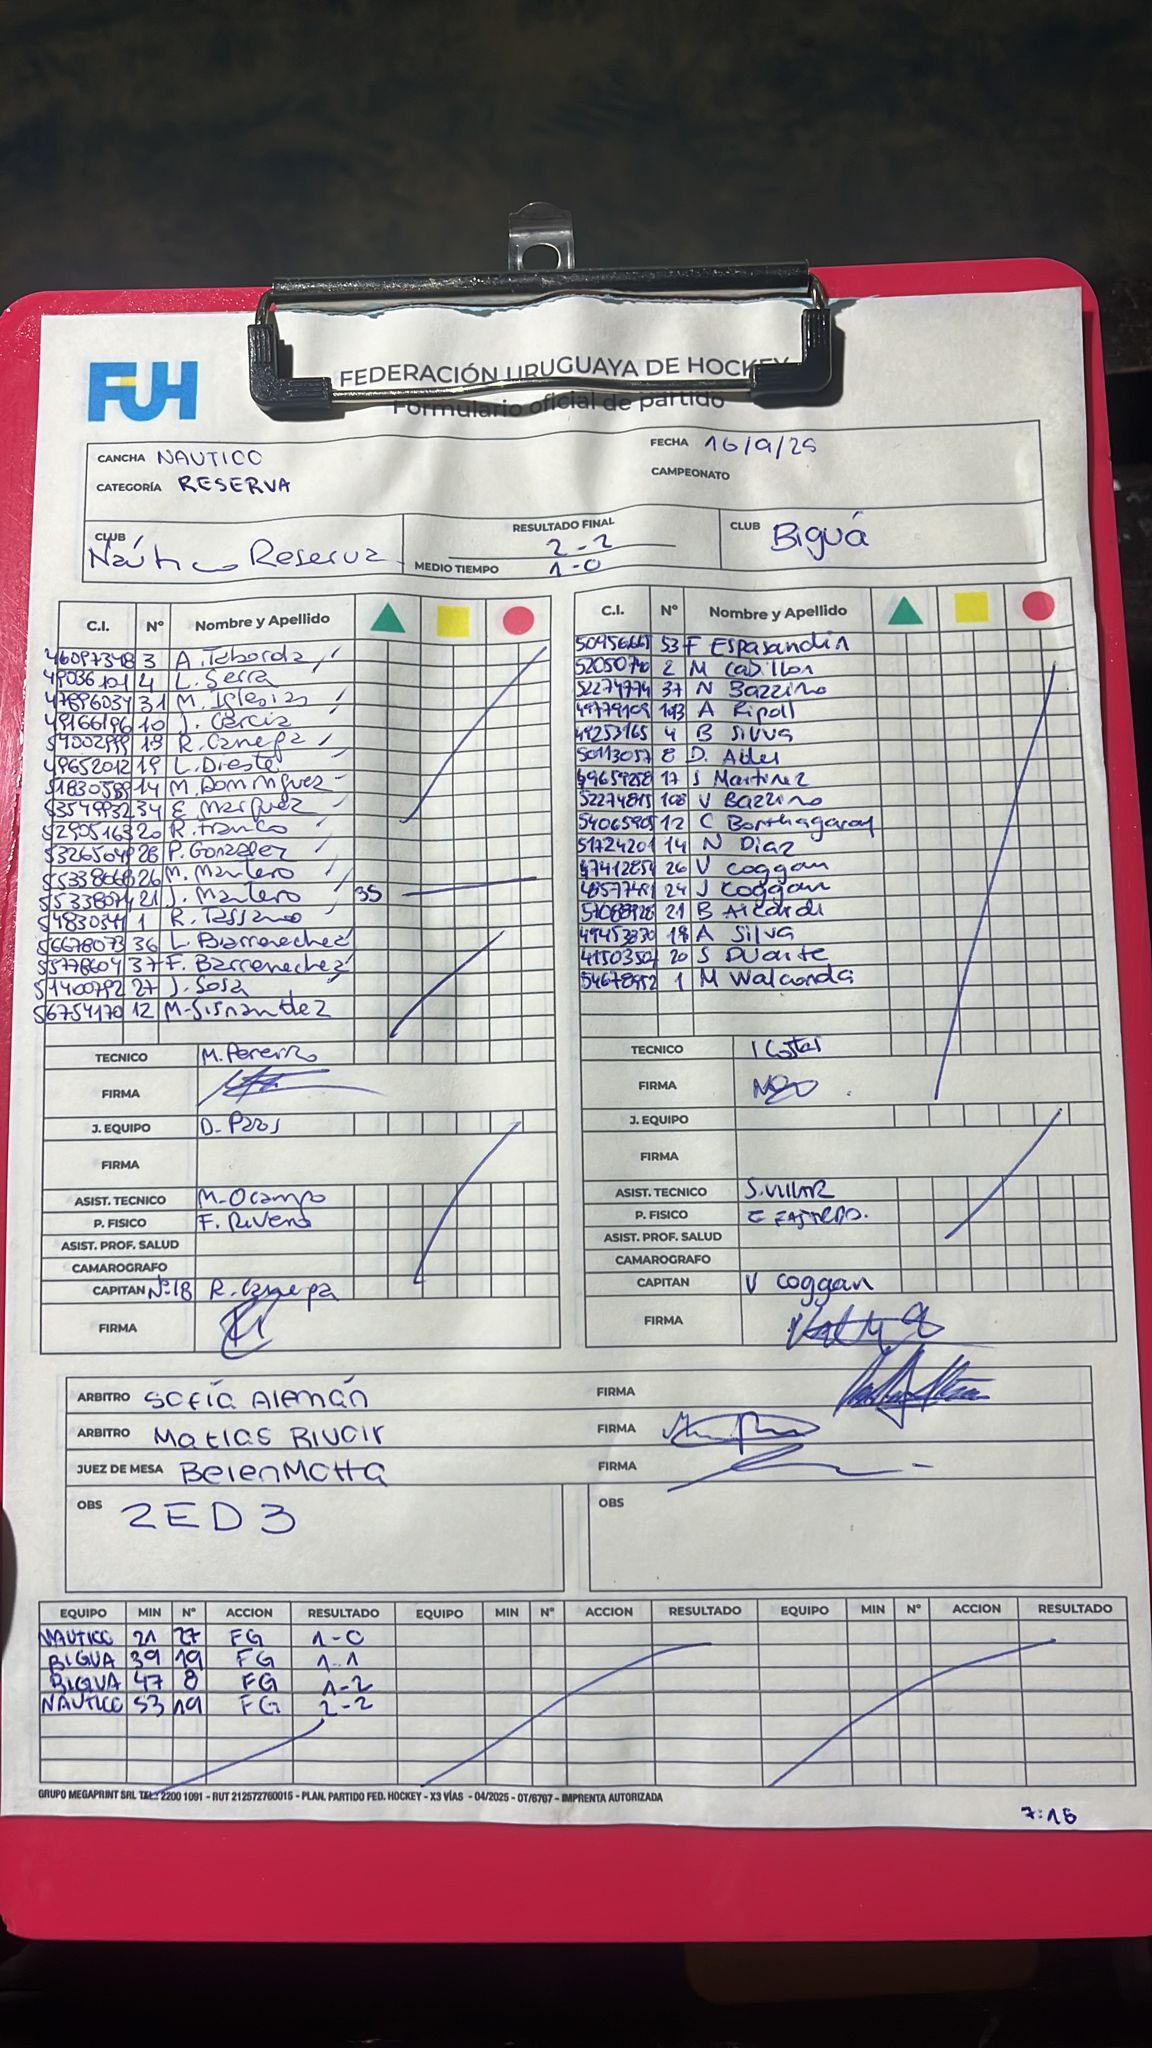 FUH
FEDERACIÓN URUGUAYA DE HOCKEY
Formulario oficial de partido
CANCHA NAUTICO
FECHA 16/9/25
CATEGORÍA RESERVA
CAMPEONATO
CLUB Náutico Reserva
RESULTADO FINAL 2-2
MEDIO TIEMPO 1-0
CLUB Biguá
C.I. Nº Nombre y Apellido
3 A. Taborda
49036101 4 L. Serra
47896034 31 M. Iglesias
49166196 10 J. García
R. Canepa
49652012 19 L. Dieste
51830589 14 M. Domínguez
53549932 34 E. Marquez
52905163 20 R. Franco
28 P. Gonzalez
26 M. Mantero
55338074 21 J. Mantero 35
1 R. Tassano
56678073 36 L. Barrenechea
55778604 37 F. Barrenechea
51400792 27 J. Sosa
56754170 12
C.I. Nº Nombre y Apellido
53 F Espasandin
2 M
52274774 37 N Bazzino
A Ripoll
49253165 4 B
50113057 8 D.
49659258 17 S Martinez
108 V Bazzino
54065905 12 C Borthagaray
51724201 14 N Diaz
47412854 26 V Coggan
24 J Coggan
21 B
A Silva
41503502 20 S Duarte
54678952 1 M
TECNICO M. Pereiro
FIRMA
J. EQUIPO D.
FIRMA
ASIST. TECNICO M. Ocampo
P. FISICO F. Rivero
ASIST. PROF. SALUD
CAMAROGRAFO
CAPITAN Nº18 R. Canepa
FIRMA
TECNICO
FIRMA
J. EQUIPO
FIRMA
ASIST. TECNICO
P. FISICO
ASIST. PROF. SALUD
CAMAROGRAFO
CAPITAN V Coggan
FIRMA
ARBITRO Sofía Alemán FIRMA
ARBITRO Matias Rivoir FIRMA
JUEZ DE MESA Belen Motta FIRMA
OBS 2ED3
OBS
EQUIPO MIN Nº ACCION RESULTADO EQUIPO MIN Nº ACCION RESULTADO EQUIPO MIN Nº ACCION RESULTADO
NAUTICO 21 27 FG 1-0
BIGUA 39 19 FG 1-1
BIGUA 47 8 FG 1-2
NAUTICO 53 19 FG 2-2
GRUPO MEGAPRINT SRL TEL.: 2200 1091 - RUT 212572760015 - PLAN. PARTIDO FED. HOCKEY - X3 VÍAS - 04/2025 - OT/6767 - IMPRENTA AUTORIZADA